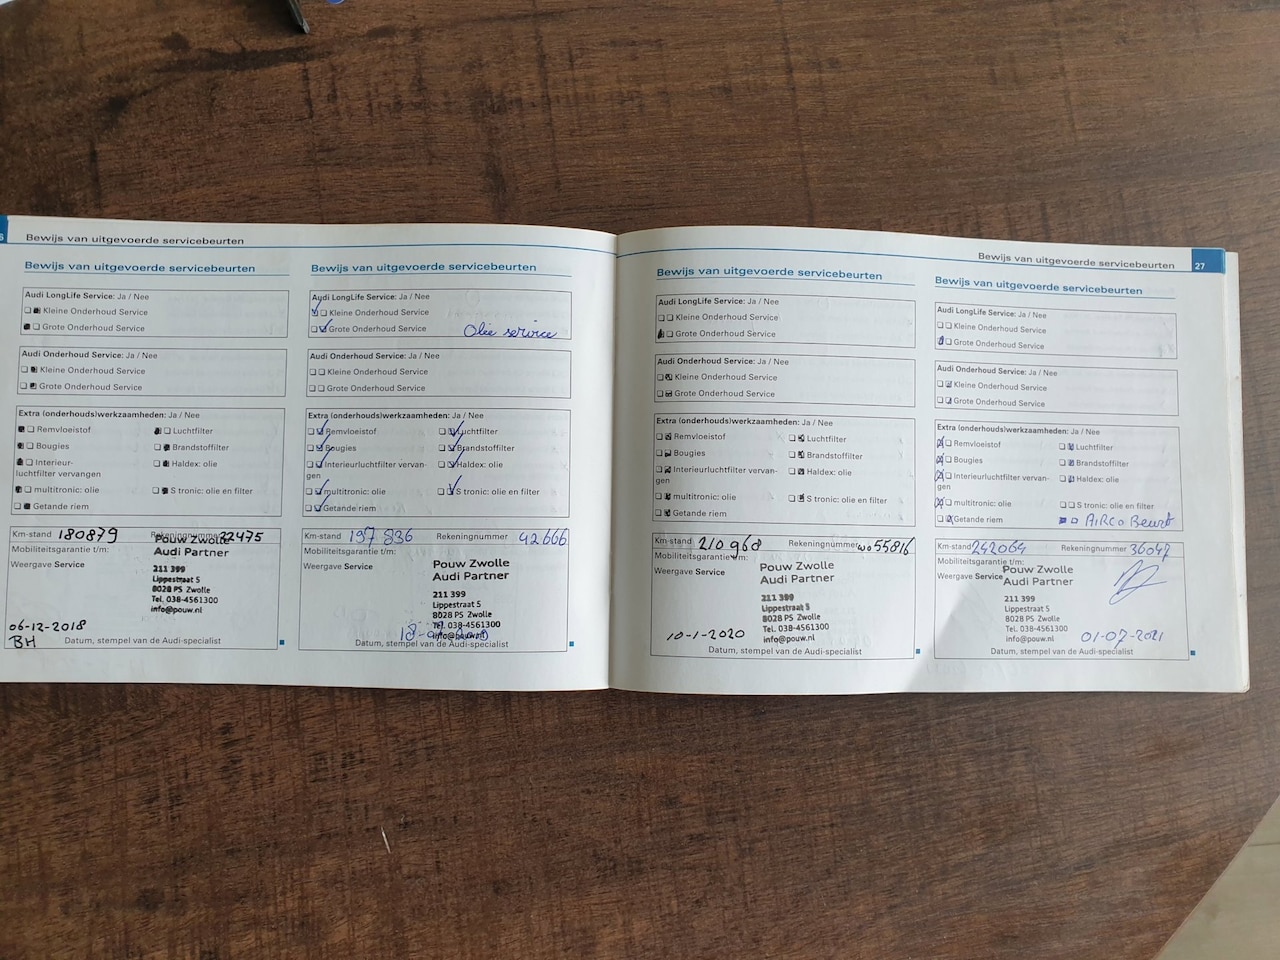 6
Bewijs van uitgevoerde servicebeurten
Bewijs van uitgevoerde servicebeurten
Audi LongLife Service: Ja / Nee
Kleine Onderhoud Service
Grote Onderhoud Service
Audi Onderhoud Service: Ja / Nee
Kleine Onderhoud Service
Grote Onderhoud Service
Extra (onderhouds)werkzaamheden: Ja / Nee
Remvloeistof Luchtfilter
Bougies Brandstoffilter
Interieur- Haldex: olie
luchtfilter vervangen
multitronic: olie S tronic: olie en filter
Getande riem
Km-stand 180879 Rekeningnummer 22475
Mobiliteitsgarantie t/m:
Weergave Service
Pouw Zwolle
Audi Partner
211 399
Lippestraat 5
8028 PS Zwolle
Tel. 038-4561300
info@pouw.nl
06-12-2018
BH
Datum, stempel van de Audi-specialist
Bewijs van uitgevoerde servicebeurten
Audi LongLife Service: Ja / Nee
Kleine Onderhoud Service
Grote Onderhoud Service
Olie service
Audi Onderhoud Service: Ja / Nee
Kleine Onderhoud Service
Grote Onderhoud Service
Extra (onderhouds)werkzaamheden: Ja / Nee
Remvloeistof Luchtfilter
Bougies Brandstoffilter
Interieurluchtfilter vervan- Haldex: olie
gen
multitronic: olie S tronic: olie en filter
Getande riem
Km-stand 197 836 Rekeningnummer 42666
Mobiliteitsgarantie t/m:
Weergave Service
Pouw Zwolle
Audi Partner
211 399
Lippestraat 5
8028 PS Zwolle
Tel. 038-4561300
info@pouw.nl
Datum, stempel van de Audi-specialist
Bewijs van uitgevoerde servicebeurten 27
Bewijs van uitgevoerde servicebeurten
Audi LongLife Service: Ja / Nee
Kleine Onderhoud Service
Grote Onderhoud Service
Audi Onderhoud Service: Ja / Nee
Kleine Onderhoud Service
Grote Onderhoud Service
Extra (onderhouds)werkzaamheden: Ja / Nee
Remvloeistof Luchtfilter
Bougies Brandstoffilter
Interieurluchtfilter vervan- Haldex: olie
gen
multitronic: olie S tronic: olie en filter
Getande riem
Km-stand 210 968 Rekeningnummer wo55816
Mobiliteitsgarantie t/m:
Weergave Service
Pouw Zwolle
Audi Partner
211 399
Lippestraat 5
8028 PS Zwolle
Tel. 038-4561300
info@pouw.nl
10-1-2020
Datum, stempel van de Audi-specialist
Bewijs van uitgevoerde servicebeurten
Audi LongLife Service: Ja / Nee
Kleine Onderhoud Service
Grote Onderhoud Service
Audi Onderhoud Service: Ja / Nee
Kleine Onderhoud Service
Grote Onderhoud Service
Extra (onderhouds)werkzaamheden: Ja / Nee
Remvloeistof Luchtfilter
Bougies Brandstoffilter
Interieurluchtfilter vervan- Haldex: olie
gen
multitronic: olie S tronic: olie en filter
Getande riem AiRCo Beurt
Km-stand 242064 Rekeningnummer 36047
Mobiliteitsgarantie t/m:
Weergave Service
Pouw Zwolle
Audi Partner
211 399
Lippestraat 5
8028 PS Zwolle
Tel. 038-4561300
info@pouw.nl
01-07-2021
Datum, stempel van de Audi-specialist